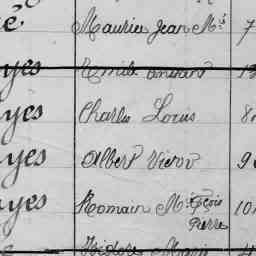 é Maurice Jean M 7
yes Emile
yes Charles Louis 8
yes Albert Victor 9
yes Romain M 10
Pierre
Isidore Marie